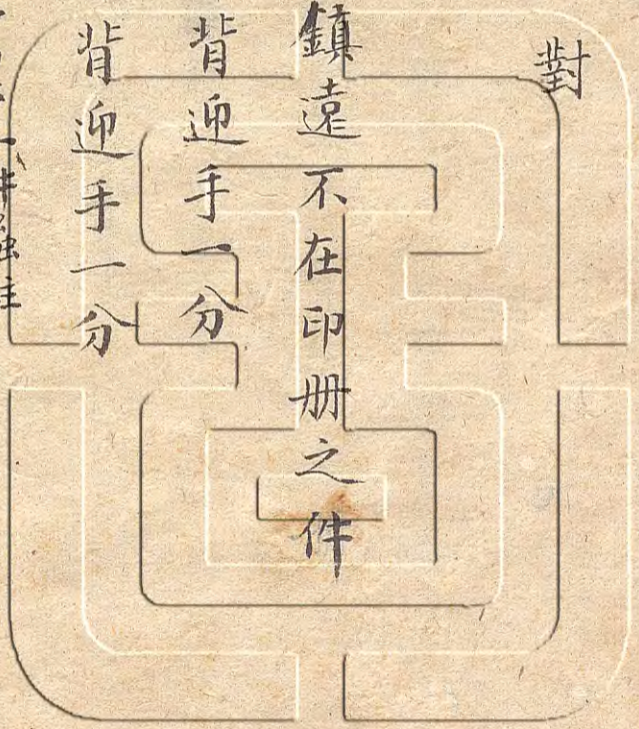 對
鎮遠不在印册之件
背迎手一分
背迎手一分